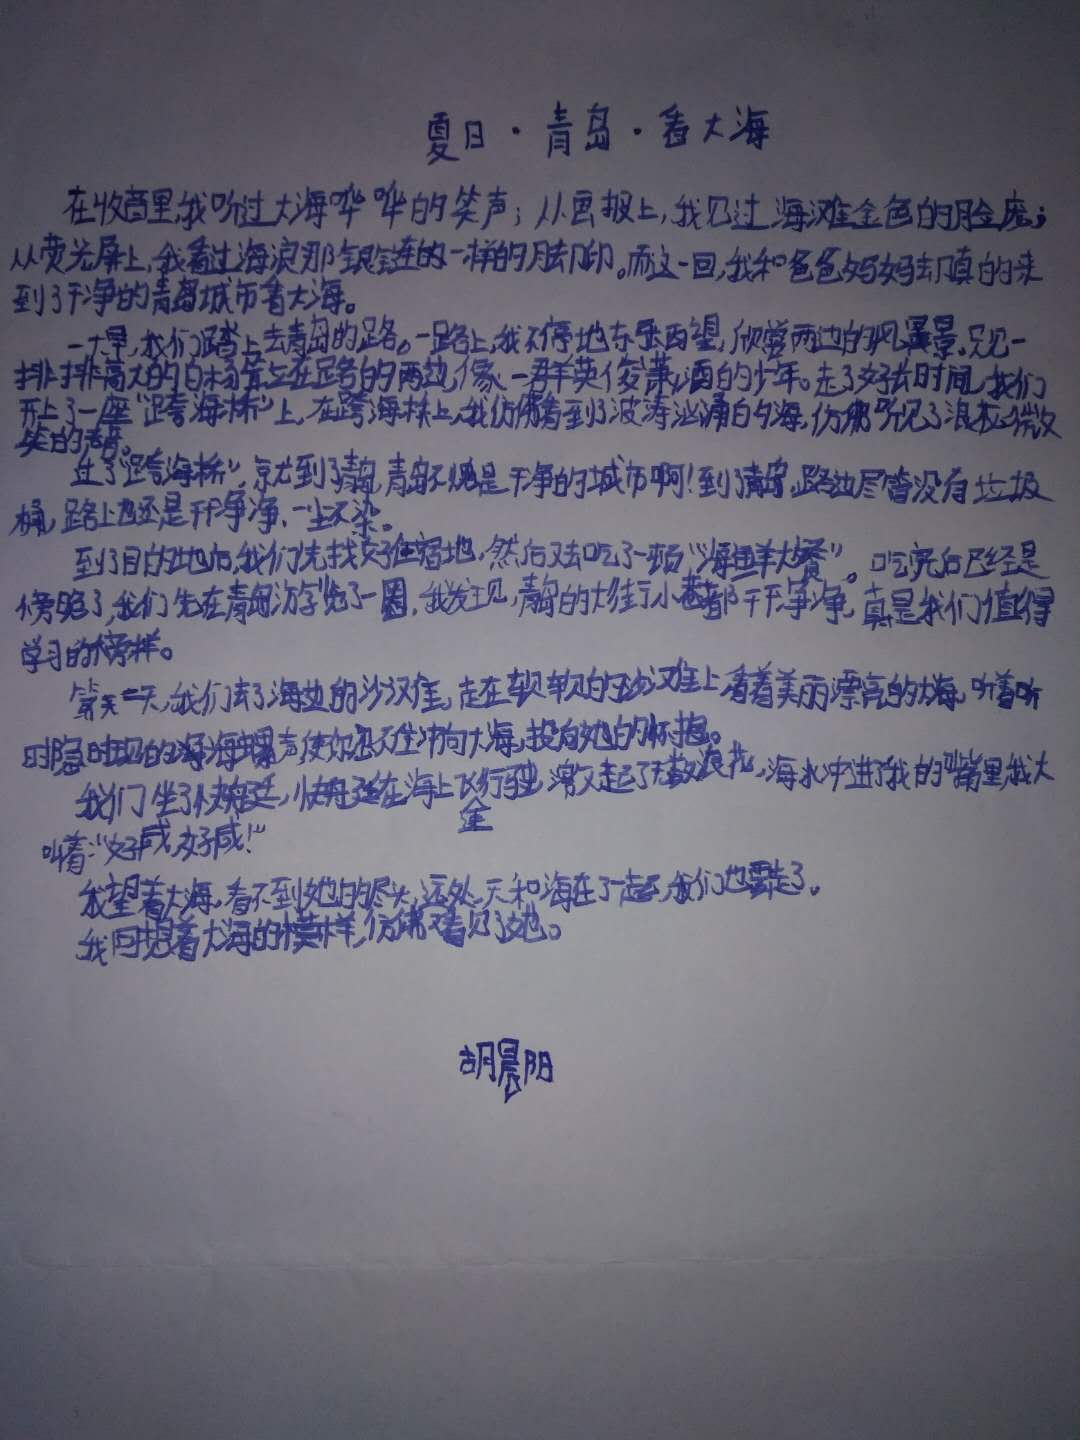 夏日·青岛·看大海
在收音里,我听过大海哗哗的笑声;从画报上,我见过海滩金色的脸庞;
从荧光屏上,我看过海浪那银链的一样的脚印。而这一回,我和爸爸妈妈却真的来
到了干净的青岛城市看大海。
一大早,我们踏上去青岛的路。一路上,我不停地东张西望,欣赏两边的风景,只见一
排排高大的白杨屹立在路的两边,像一群英俊潇洒的少年。走了好长时间,我们
开上了一座“跨海桥”上,在跨海桥上,我仿佛看到了波涛汹涌的海,仿佛听见了浪花微
笑的声音。
过了“跨海桥”,就到了青岛,青岛不愧是干净的城市啊!到了青岛,路边尽管没有垃圾
桶,路上也还是干干净净、一尘不染。
到了目的地后,我们先找好住宿地,然后又去吃了一顿“海鲜大餐”。吃完后已经是
傍晚了,我们先在青岛游览了一圈,我发现,青岛的大街小巷都干干净净,真是我们值得
学习的榜样。
第二天,我们去了海边的沙滩,走在软软的沙滩上看着美丽漂亮的大海,听着听
时隐时现的海螺声使你忍不住冲向大海,投向她的怀抱。
我们坐了快艇,快艇在海上飞行驶,激起了无数浪花,海水冲进了我的嘴里,我大
叫着:“好咸,好咸!”
我望着大海,看不到她的尽头,远处,天和海在了一起,我们也要走了。
我回想着大海的模样,仿佛又看见了她。
胡晨阳